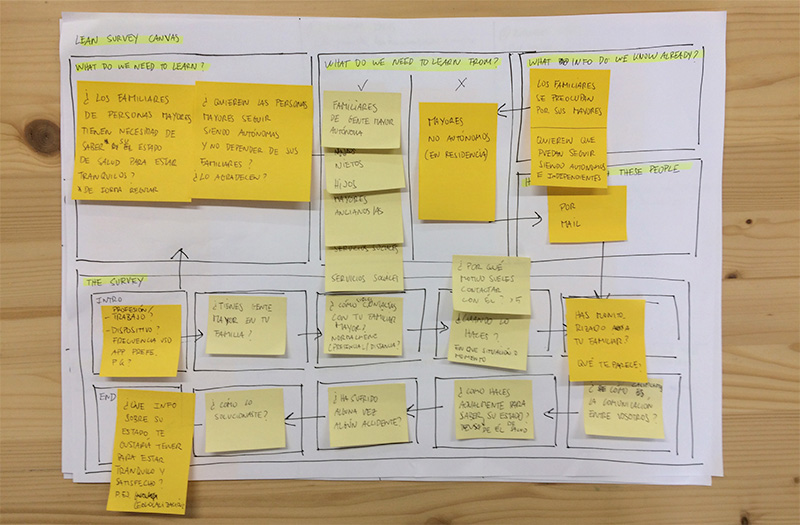 LEAN SURVEY CANVAS
WHAT DO WE NEED TO LEARN?
¿LOS FAMILIARES
DE PERSONAS MAYORES
TIENEN NECESIDAD DE
SABER SU ESTADO
DE SALUD PARA ESTAR
TRANQUILOS?
* DE FORMA REGULAR
¿QUIEREN LAS PERSONAS
MAYORES SEGUIR
SIENDO AUTÓNOMAS
Y NO DEPENDER DE SUS
FAMILIARES?
¿LO AGRADECEN?
WHAT DO WE NEED TO LEARN FROM?
✓
X
FAMILIARES
DE GENTE MAYOR
AUTÓNOMA
NIETOS
HIJOS
MAYORES
ANCIANOS/AS
SERVICIOS SOCIALES
SERVICIOS SOCIALES
MAYORES
NO AUTÓNOMOS
(EN RESIDENCIA)
WHAT INFO DO WE KNOW ALREADY?
LOS FAMILIARES
SE PREOCUPAN
POR SUS MAYORES
QUIEREN QUE
PUEDAN SEGUIR
SIENDO AUTÓNOMOS
E INDEPENDIENTES
THESE PEOPLE
POR
MAIL
THE SURVEY
INTRO
PROFESIÓN/
- TRABAJO?
- DISPOSITIVO?
FRECUENCIA USO
APP PREFE.
¿TIENES GENTE
MAYOR EN TU
FAMILIA?
¿CÓMO CONTACTAS
CON TU FAMILIAR
MAYOR?
NORMALMENTE
(PRESENCIAL/DISTANCIA)?
¿POR QUÉ
MOTIVO SUELES
CONTACTAR
CON ÉL?
¿CUANDO LO
HACES?
EN QUE SITUACIÓN O
MOMENTO
HAS MONITO-
RIZADO A
TU FAMILIAR?
QUÉ TE PARECE?
END
¿QUE INFO
SOBRE SU
ESTADO TE
GUSTARÍA TENER
PARA ESTAR
TRANQUILO Y
SATISFECHO?
P.EJ.
GEOLOCALIZACIÓN
¿CÓMO LO
SOLUCIONASTE?
¿HA SUFRIDO
ALGUNA VEZ
ALGÚN ACCIDENTE?
¿COMO HACES
ACTUALMENTE PARA
SABER SU ESTADO?
DE SALUD
¿CÓMO ES
LA COMUNICACIÓN
ENTRE VOSOTROS?